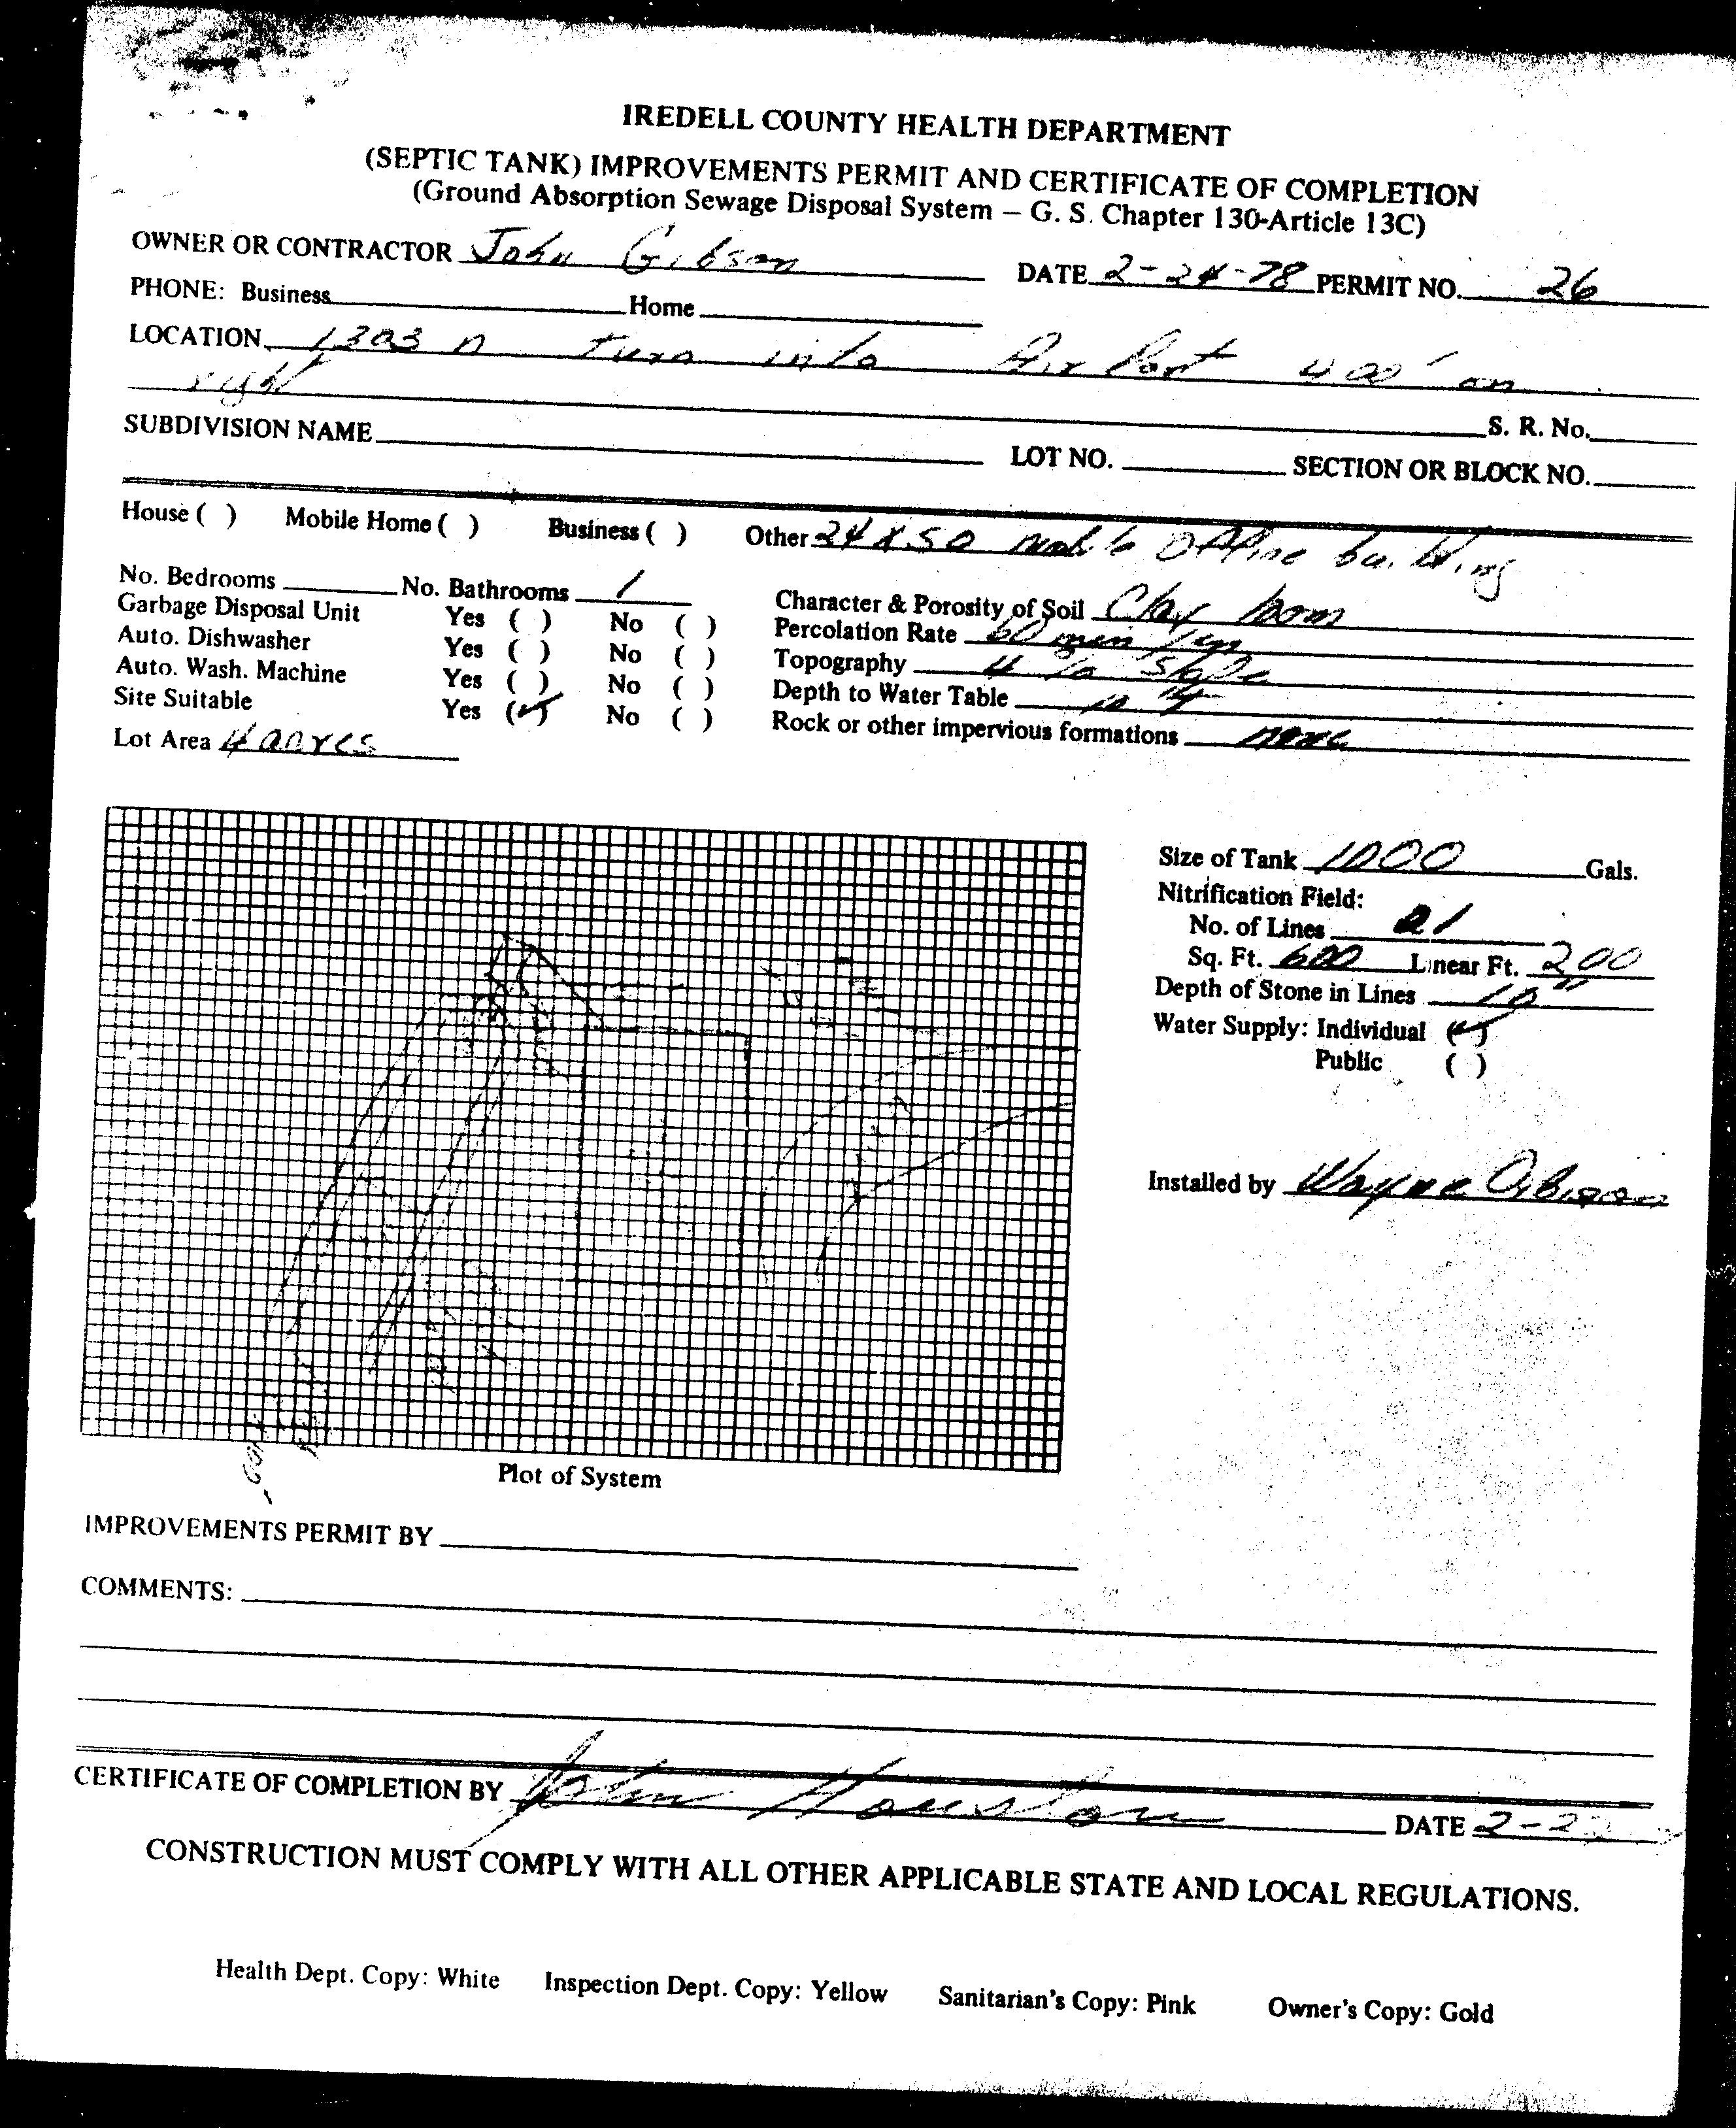 IREDELL COUNTY HEALTH DEPARTMENT
(SEPTIC TANK) IMPROVEMENTS PERMIT AND CERTIFICATE OF COMPLETION
(Ground Absorption Sewage Disposal System – G. S. Chapter 130-Article 13C)
OWNER OR CONTRACTOR John Gibson DATE 2-24-78 PERMIT NO. 26
PHONE: Business Home
LOCATION 1303 n turn into Air Port 400' on
right
S. R. No.
SUBDIVISION NAME LOT NO. SECTION OR BLOCK NO.
House ( ) Mobile Home ( ) Business ( ) Other 24 x 50 mobile Office building
No. Bedrooms No. Bathrooms 1
Garbage Disposal Unit Yes ( ) No ( ) Character & Porosity of Soil Clay loom
Auto. Dishwasher Yes ( ) No ( ) Percolation Rate 60 min/in
Auto. Wash. Machine Yes ( ) No ( ) Topography 4 % Slope
Site Suitable Yes (✓) No ( ) Depth to Water Table
Lot Area 4 acres Rock or other impervious formations none
Size of Tank 1000 Gals.
Nitrification Field:
No. of Lines 1
Sq. Ft. 600 Linear Ft. 200
Depth of Stone in Lines 10"
Water Supply: Individual (✓)
Public ( )
Installed by Wayne
Plot of System
IMPROVEMENTS PERMIT BY
COMMENTS:
CERTIFICATE OF COMPLETION BY John Houston DATE 2-2
CONSTRUCTION MUST COMPLY WITH ALL OTHER APPLICABLE STATE AND LOCAL REGULATIONS.
Health Dept. Copy: White Inspection Dept. Copy: Yellow Sanitarian's Copy: Pink Owner's Copy: Gold